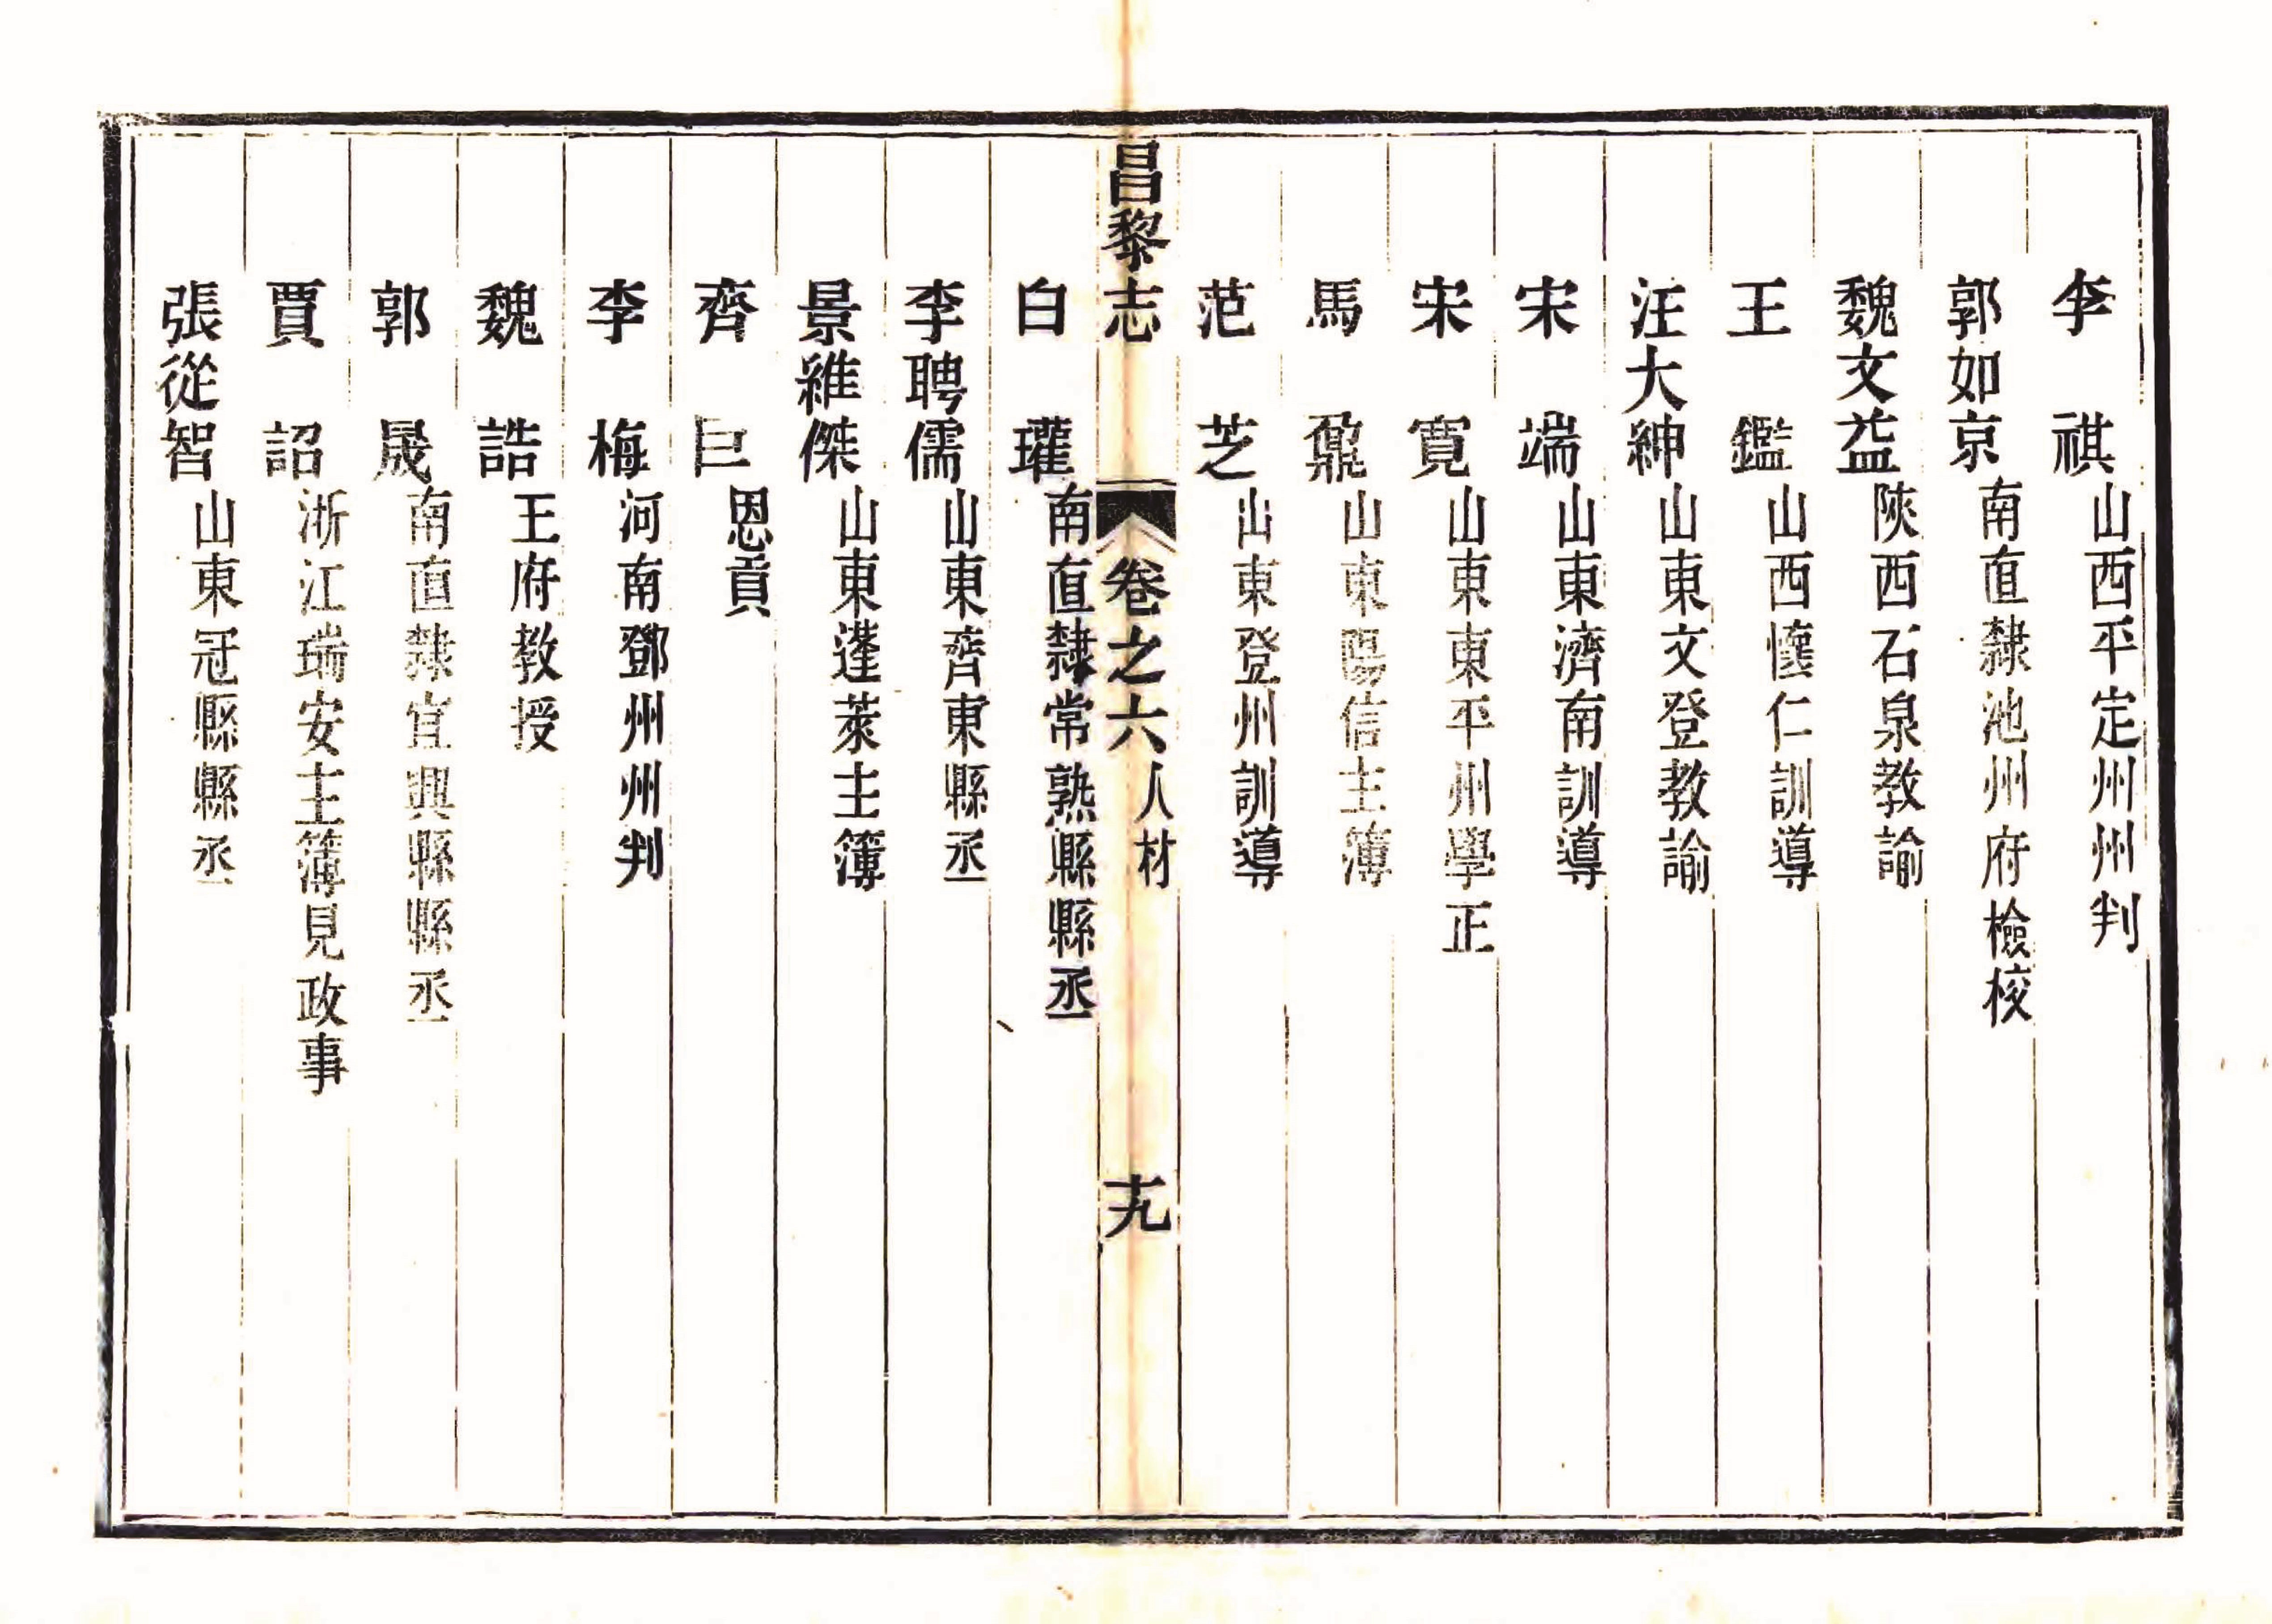 李祺 山西平定州州判
郭如京 南直隸池州府檢校
魏文益 陝西石泉教諭
王鑑 山西懷仁訓導
汪大紳 山東文登教諭
宋端 山東濟南訓導
宋寬 山東東平州學正
馬鼐 山東陽信主簿
范芝 山東登州訓導
昌黎志 卷之六 人材 十九
白瓘 南直隸常熟縣縣丞
李聘儒 山東齊東縣丞
景維傑 山東蓬萊主簿
齊巨 恩貢
李梅 河南鄧州州判
魏誥 王府教授
郭晟 南直隸宜興縣縣丞
賈詔 浙江瑞安主簿見政事
張從智 山東冠縣縣丞